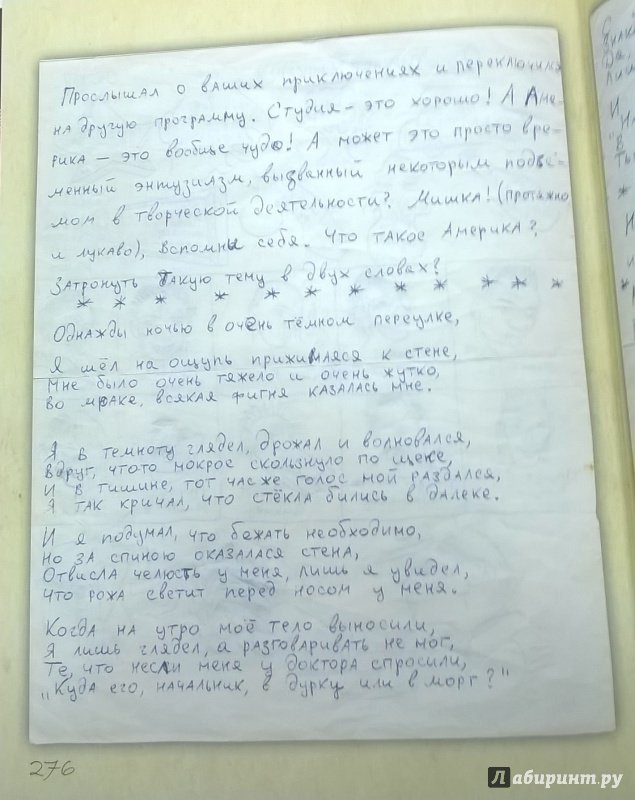 Прослышал о ваших приключениях и переключился
на другую программу. Студия – это хорошо! А Аме-
рика – это вообще чудо! А может это просто вре-
менный энтузиазм, вызванный некоторым подъё-
мом в творческой деятельности? Мишка! (протяжно
и лукаво), Вспомни себя. Что такое Америка?
Затронуть такую тему в двух словах?
* * * * * * * * * * * *
Однажды ночью в очень тёмном переулке,
Я шёл на ощупь прижимаяся к стене,
Мне было очень тяжело и очень жутко,
Во мраке, всякая фигня казалась мне.
Я в темноту глядел, дрожал и волновался,
Вдруг, чтото мокрое скользнуло по щеке,
И в тишине, тот час же голос мой раздался,
Я так кричал, что стёкла бились в далеке.
И я подумал, что бежать необходимо,
Но за спиною оказалася стена,
Отвисла челюсть у меня, лишь я увидел,
Что рожа светит перед носом у меня.
Когда на утро моё тело выносили,
Я лишь глядел, а разговаривать не мог,
Те, что несли меня у доктора спросили,
"Куда его, начальник, в дурку или в морг?"
276
Лабиринт.ру